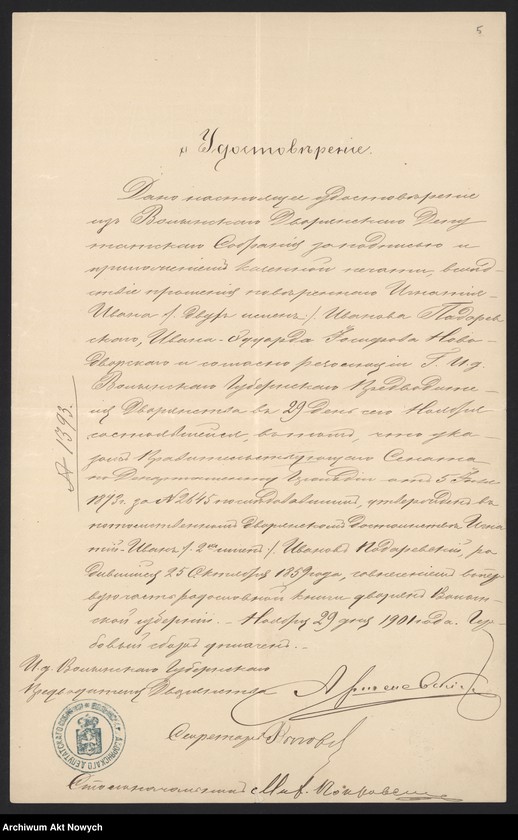 5
Удостовѣреніе.
Дано настоящее удостовѣреніе
изъ Волынскаго Дворянскаго Депу
татскаго Собранія за подписью и
приложеніемъ казенной печати, вслѣд-
ствіе прошенія повѣреннаго Игнатія-
Ивана /: двухъ именъ :/ Иванова Падарев
скаго, Ивана-Эдуарда Іосифова Ново-
дворскаго и согласно резолюціи Г. И. д.
Волынскаго Губернскаго Предводите-
ля Дворянства въ 29 день сего Ноября
состоявшейся, въ томъ, что ука-
зомъ Правительствующаго Сената
по Департаменту Герольдіи отъ 5 
1873 г. за № 2645 послѣдовавшимъ, утвержденъ въ
потомственномъ дворянскомъ достоинствѣ Игна
тій-Иванъ /: 2хъ именъ :/ Ивановъ Падаревскій, ро
дившійся 25 Октября 1859 года, со внесеніемъ въ пер
вую часть родословной книги дворянъ Волын-
ской губерніи. - Ноября 29 дня 1901 года. Гер-
бовый сборъ уплаченъ. -
№ 1393
И. д. Волынскаго Губернскаго
Предводителя Дворянства
Секретарь
Столоначальникъ
Archiwum Akt Nowych